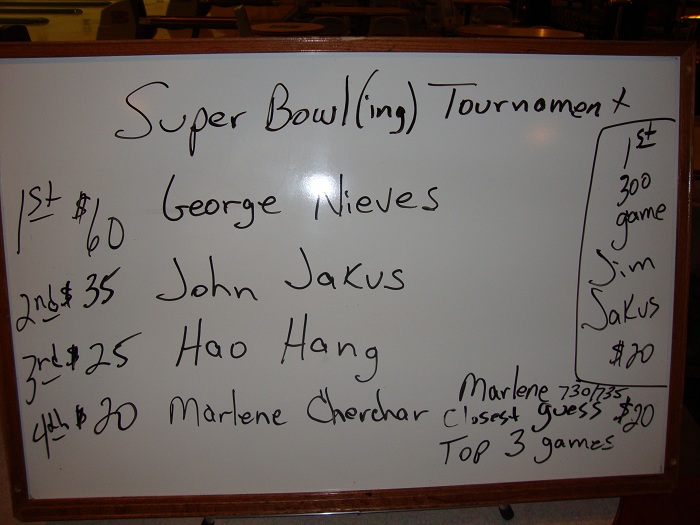 Super Bowl(ing) Tournament
1st $60 George Nieves
2nd $35 John Jakus
3rd $25 Hao Hang
4th $20 Marlene Cherchar
1st
300
game
Jim
Jakus
$20
Marlene 730/735
Closest guess $20
Top 3 games